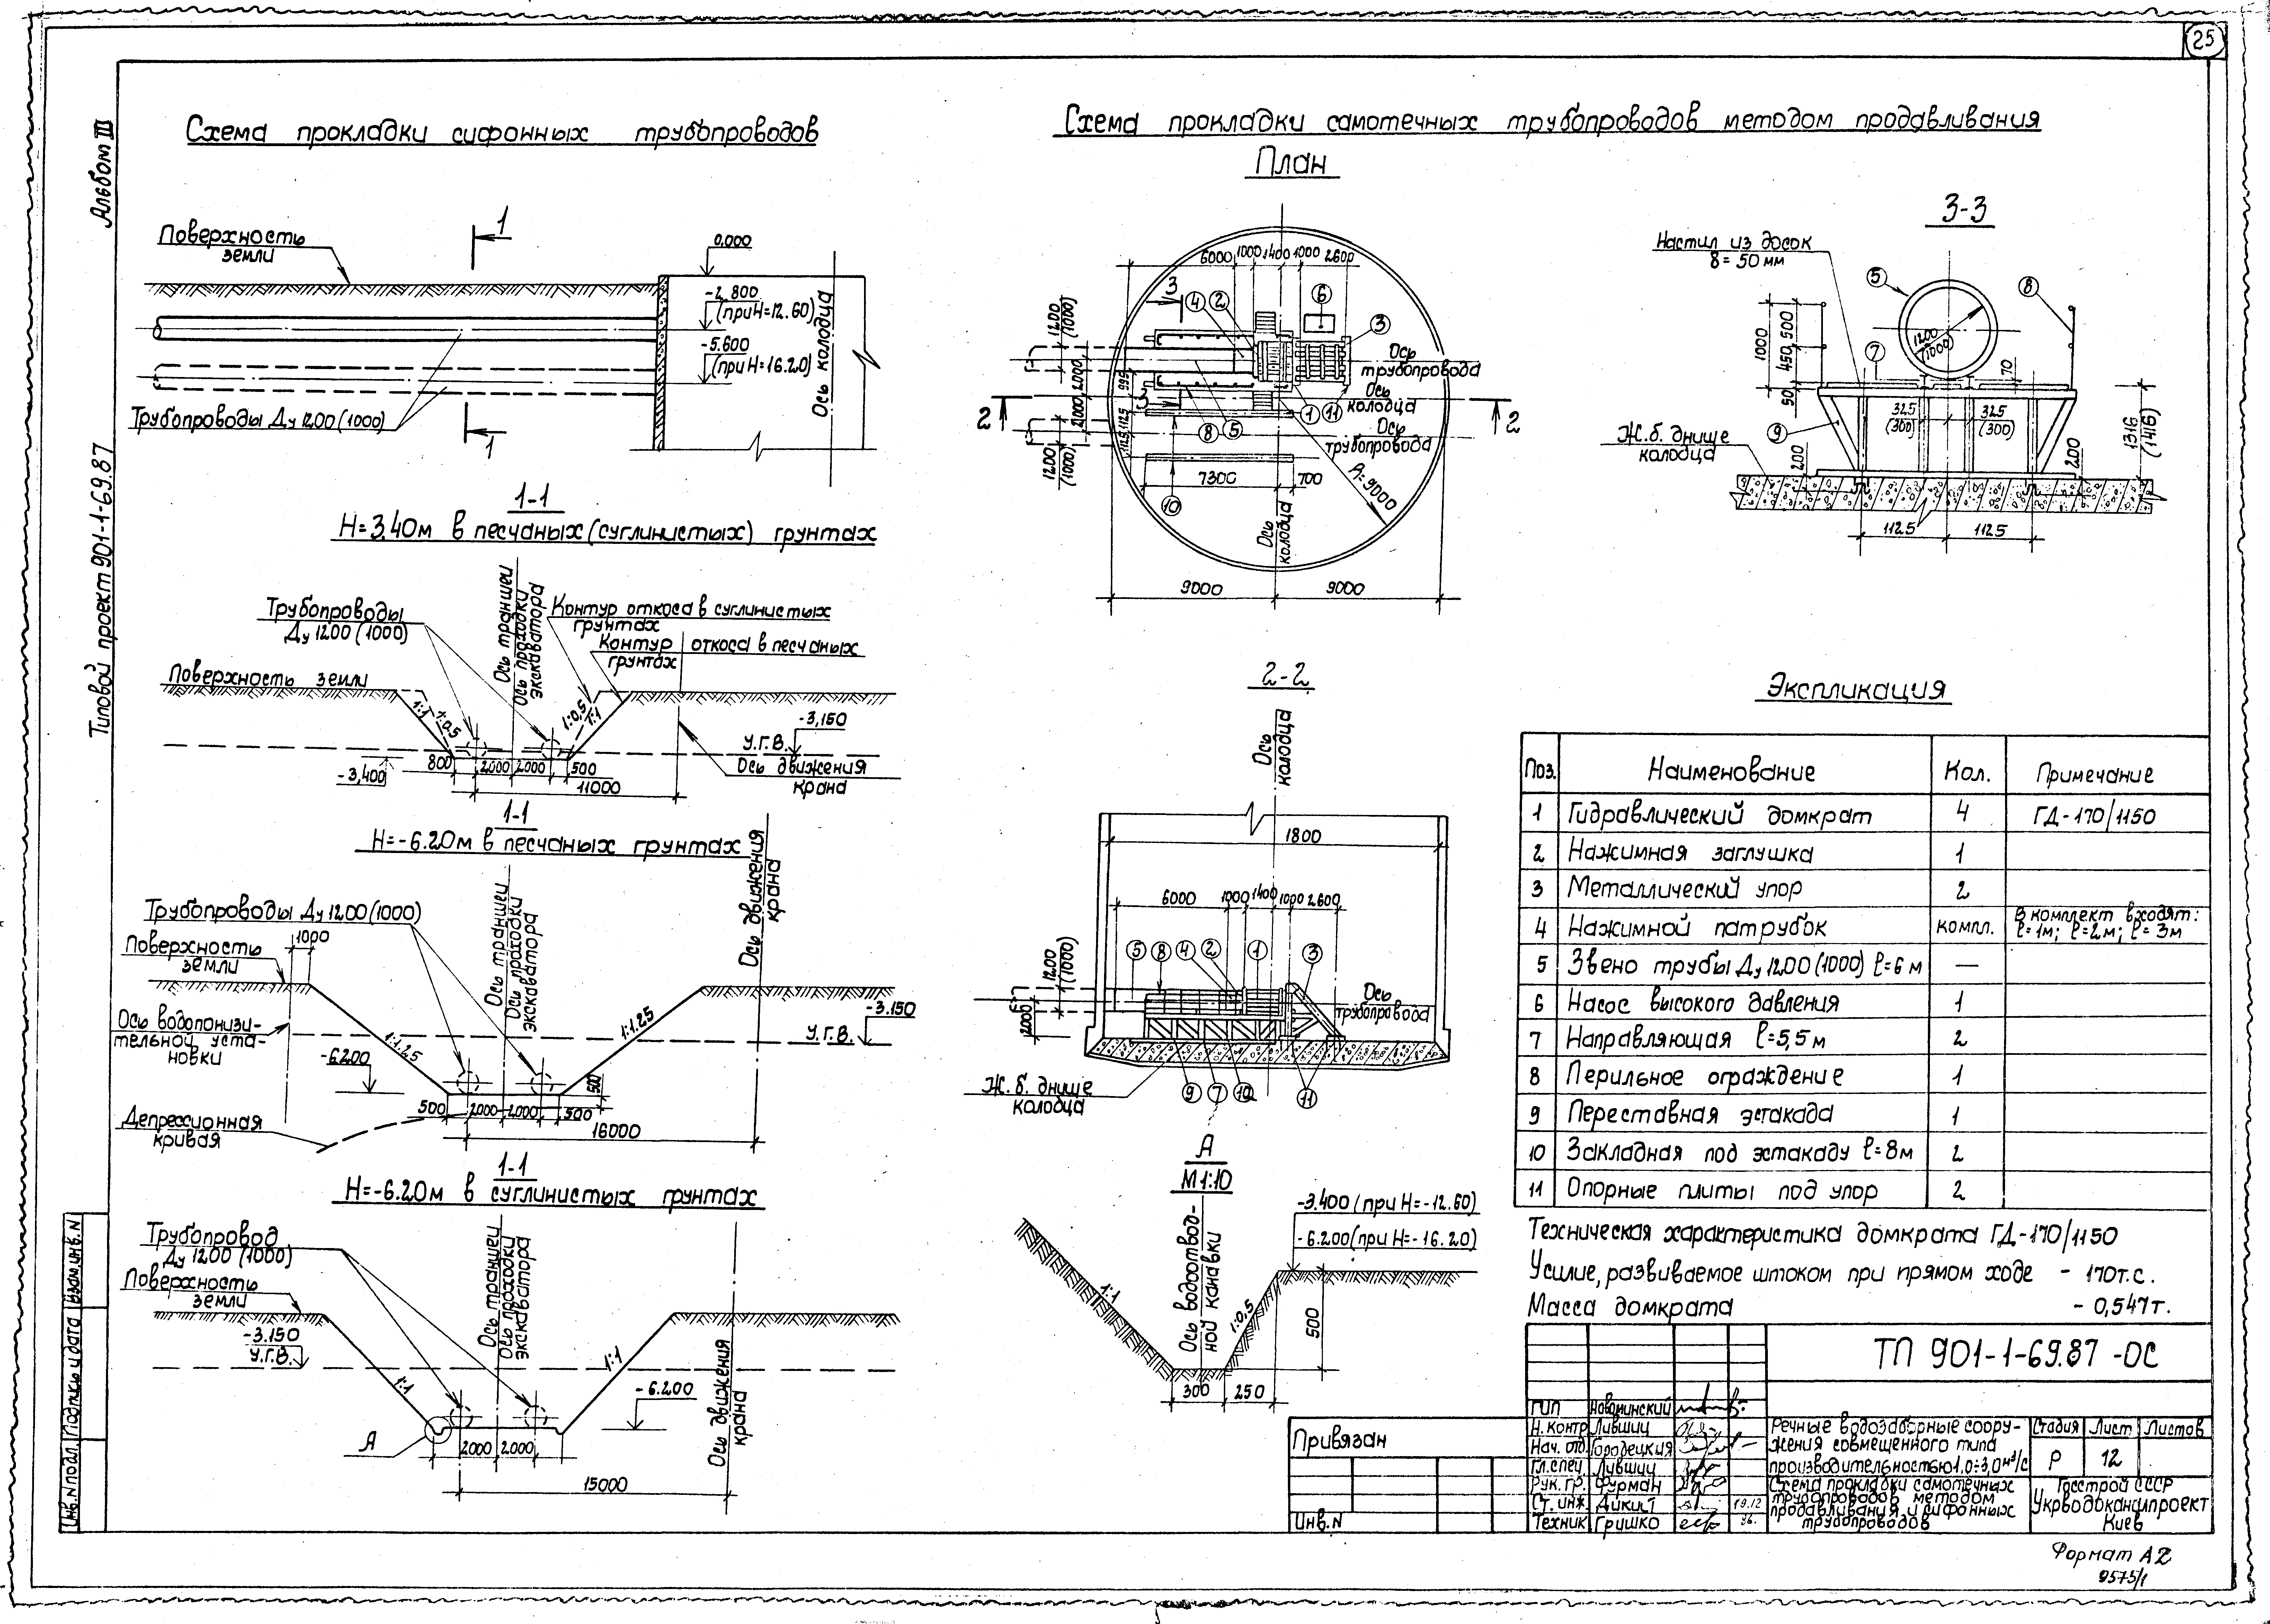 25
Альбом III
Типовой проект 901-1-69.87
Схема прокладки сифонных трубопроводов
1
Поверхность
земли
0,000
-2,800
(при Н=12.60)
-5.600
(при Н=16.20)
Ось колодца
Трубопроводы Ду 1200 (1000)
1
1-1
Н=3.40м в песчаных (суглинистых) грунтах
Трубопроводы
Ду 1200 (1000)
Ось траншеи
Ось проходки
экскаватора
Контур откоса в суглинистых
грунтах
Контур откоса в песчаных
грунтах
Поверхность земли
1:1
1:0.5
1:0,5
1:1
-3,150
У.Г.В.
-3,400
800
2000
2000
500
Ось движения
крана
11000
1-1
Н=-6.20м в песчаных грунтах
Трубопроводы Ду 1200 (1000)
1000
Поверхность
земли
Ось траншеи
Ось проходки
экскаватора
Ось движения
крана
Ось водопонизи-
тельной уста-
новки
1:1.25
1:1.25
-3.150
У.Г.В.
-6.200
500
500
2000
2000
500
Депрессионная
кривая
16000
1-1
Н=-6.20м в суглинистых грунтах
Трубопровод
Ду 1200 (1000)
Поверхность
земли
Ось траншеи
Ось проходки
экскаватора
-3.150
У.Г.В.
1:1
1:1
-6.200
А
2000
2000
Ось движения
крана
15000
Схема прокладки самотечных трубопроводов методом продавливания
План
6000
1000
1400
1000
2600
3
4
2
6
3
1200
(1000)
2000
995
2000
1125
1125
1200
(1000)
Ось
трубопровода
Ось
колодца
Ось
трубопровода
2
2
3
8
5
1
11
10
7300
700
R=9000
Ось
колодца
9000
9000
3-3
Настил из досок
δ=50 мм
5
8
1200
(1000)
7
70
1000
500
450
50
325
(300)
325
(300)
9
Ж.б. днище
колодца
200
200
1316
(1416)
1125
1125
2-2
Ось
колодца
1800
6000
1000
1400
1000
2600
5
8
4
2
1
3
1200
(1000)
2000
Ось
трубопровода
Ж.б. днище
колодца
9
7
10
11
А
М1:10
-3.400 (при Н=-12.60)
-6.200 (при Н=-16.20)
Ось водоотвод-
ной канавки
1:1
1:0,5
500
300
250
Экспликация
Поз. Наименование Кол. Примечание
1 Гидравлический домкрат 4 ГД-170/1150
2 Нажимная заглушка 1
3 Металлический упор 2
4 Нажимной патрубок компл. В комплект входят:
ℓ=1м; ℓ=2м; ℓ=3м
5 Звено трубы Ду 1200 (1000) ℓ=6 м —
6 Насос высокого давления 1
7 Направляющая ℓ=5,5 м 2
8 Перильное ограждение 1
9 Переставная эстакада 1
10 Закладная под эстакаду ℓ=8м 2
11 Опорные плиты под упор 2
Техническая характеристика домкрата ГД-170/1150
Усилие, развиваемое штоком при прямом ходе - 170т.с.
Масса домкрата - 0,547т.
ТП 901-1-69.87 -ОС
ГИП Новоминский
Н.контр Лившиц
Нач. отд. Городецкий
Гл.спец Лившиц
Рук. гр. Фурман
Ст. инж.
19.12
Техник Гришко
Речные водозаборные соору-
жения совмещенного типа
производительностью 1,0÷3,0 м³/с
Стадия Лист Листов
Р 12
Схема прокладки самотечных
трубопроводов методом
продавливания и сифонных
трубопроводов
Госстрой СССР
Укрводоканалпроект
Киев
Привязан
Инв.N
Инв.N подл. Подпись и дата Взам.инв.N
Формат А2
9575/1